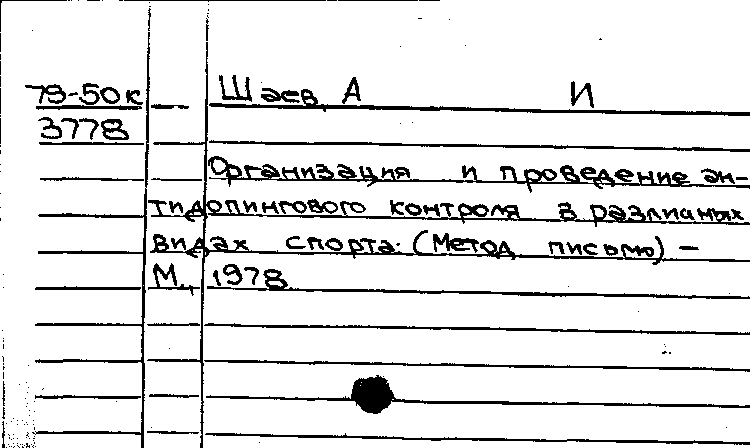 79-50к Шаев, А И
3778
Организация и проведение ан-
тидопингового контроля в различных
видах спорта. (Метод письмо) –
М., 1978